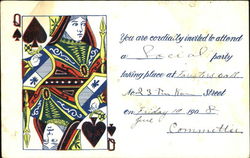 Q
You are cordially invited to attend
a Social party
taking place at
No. 23 Street
on Friday 10 1908
June
Committee
Q